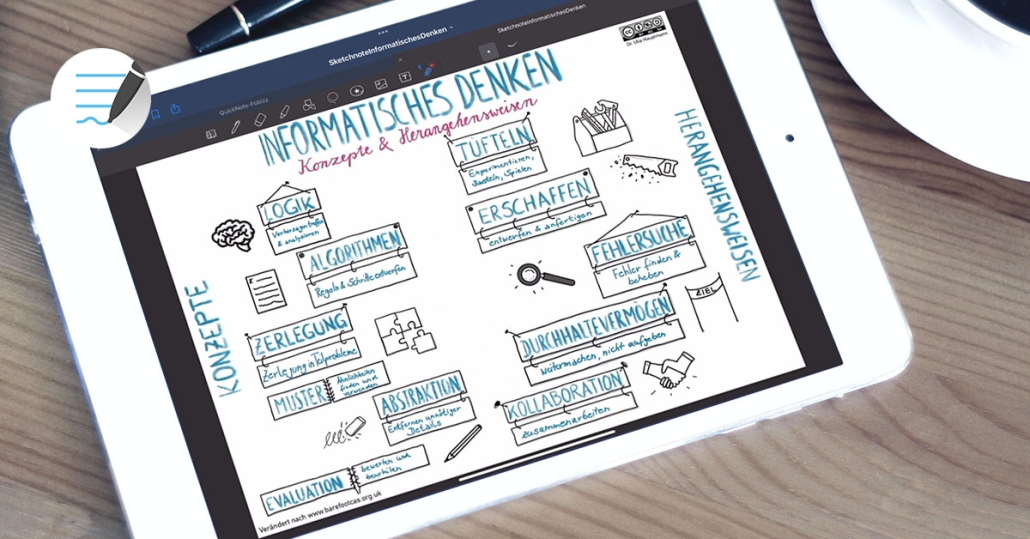 SketchnoteInformatischesDenken
SketchnoteInformatischesDenken
QuickNote-Foblizz
Dr. Ulla Hauptmann
INFORMATISCHES DENKEN
Konzepte & Herangehensweisen
KONZEPTE
LOGIK
Vorhersagen treffen
& analysieren
ALGORITHMEN
Regeln & Schritte entwerfen
ZERLEGUNG
Zerlegung in Teilprobleme
MUSTER
Ähnlichkeiten
finden und
verwenden
ABSTRAKTION
Entfernen unnötiger
Details
EVALUATION
bewerten und
beurteilen
Verändert nach www.barefootcas.org.uk
HERANGEHENSWEISEN
TÜFTELN
Experimentieren,
Basteln, Spielen
ERSCHAFFEN
entwerfen & anfertigen
FEHLERSUCHE
Fehler finden &
beheben
DURCHHALTEVERMÖGEN
Weitermachen, nicht aufgeben
ZIEL
KOLLABORATION
zusammenarbeiten